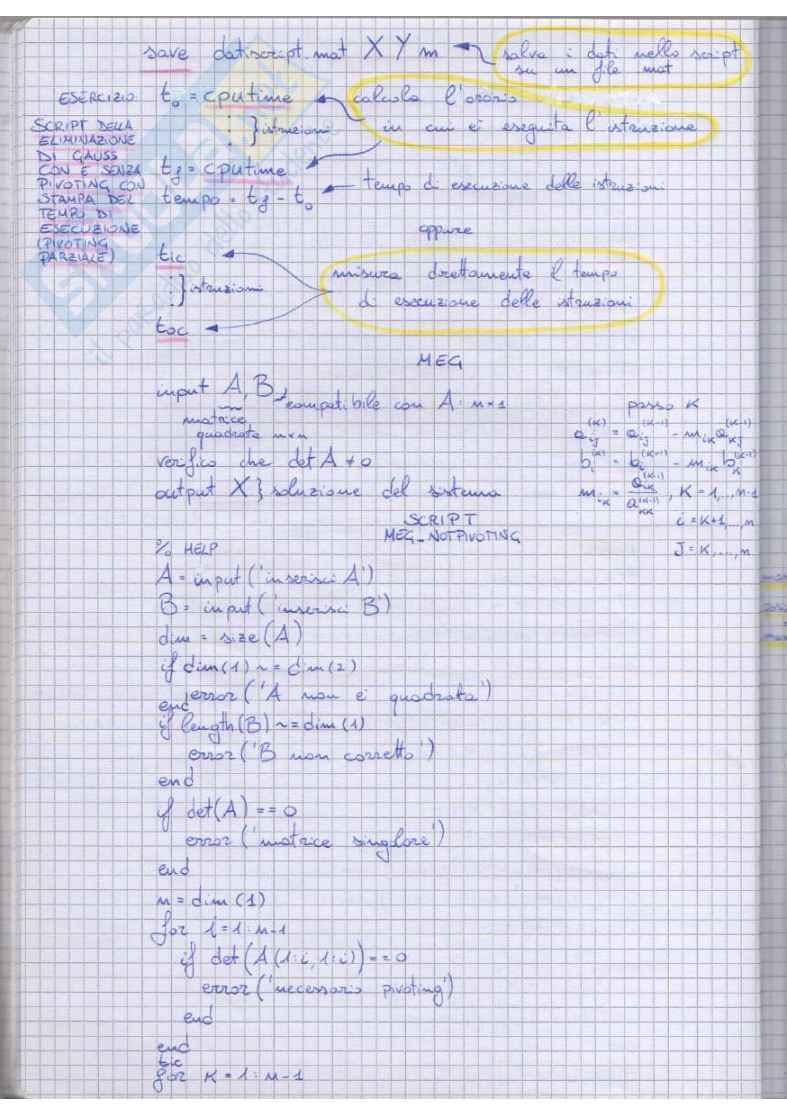 save datiscript.mat X Y m
salva i dati nello script
su un file mat
ESERCIZIO
SCRIPT DELLA
ELIMINAZIONE
DI GAUSS
CON E SENZA
PIVOTING CON
STAMPA DEL
TEMPO DI
ESECUZIONE
(PIVOTING
PARZIALE)
t₀ = cputime
calcola l'orario
⋮ } istruzioni
in cui è eseguita l'istruzione
tf = cputime
tempo = tf - t₀
tempo di esecuzione delle istruzioni
oppure
tic
⋮ } istruzioni
misura direttamente il tempo
di esecuzione delle istruzioni
toc
MEG
input A, B
compatibile con A: n×1
matrice
quadrata n×n
verifico che det A ≠ 0
output X } soluzione del sistema
passo K
a_ij^(K) = a_ij^(K-1) - m_iK a_Kj^(K-1)
b_i^(K) = b_i^(K-1) - m_iK b_K^(K-1)
m_iK = a_iK^(K-1) / a_KK^(K-1), K = 1,...,n-1
i = K+1,...,n
J = K,...,n
SCRIPT
MEG_NOTPIVOTING
% HELP
A = input('inserisci A')
B = input('inserisci B')
dim = size(A)
if dim(1) ~= dim(2)
error('A non è quadrata')
end
if length(B) ~= dim(1)
error('B non corretto')
end
if det(A) == 0
error('matrice singlore')
end
n = dim(1)
for i = 1:n-1
if det(A(1:i,1:i)) == 0
error('necessario pivoting')
end
end
tic
for K = 1:n-1